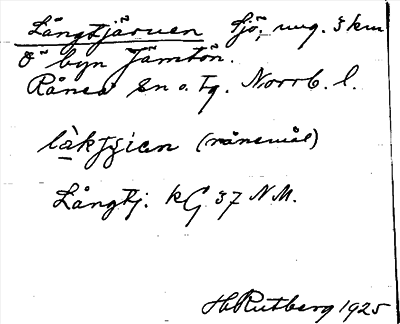 Långtjärnen Sjö, ung. 3 km
Ö byn Jämtön.
Råneå sn o. tg. Norrb. l.
(rånemål)
Långtj. kG 37 N M.
H Rutberg 1925